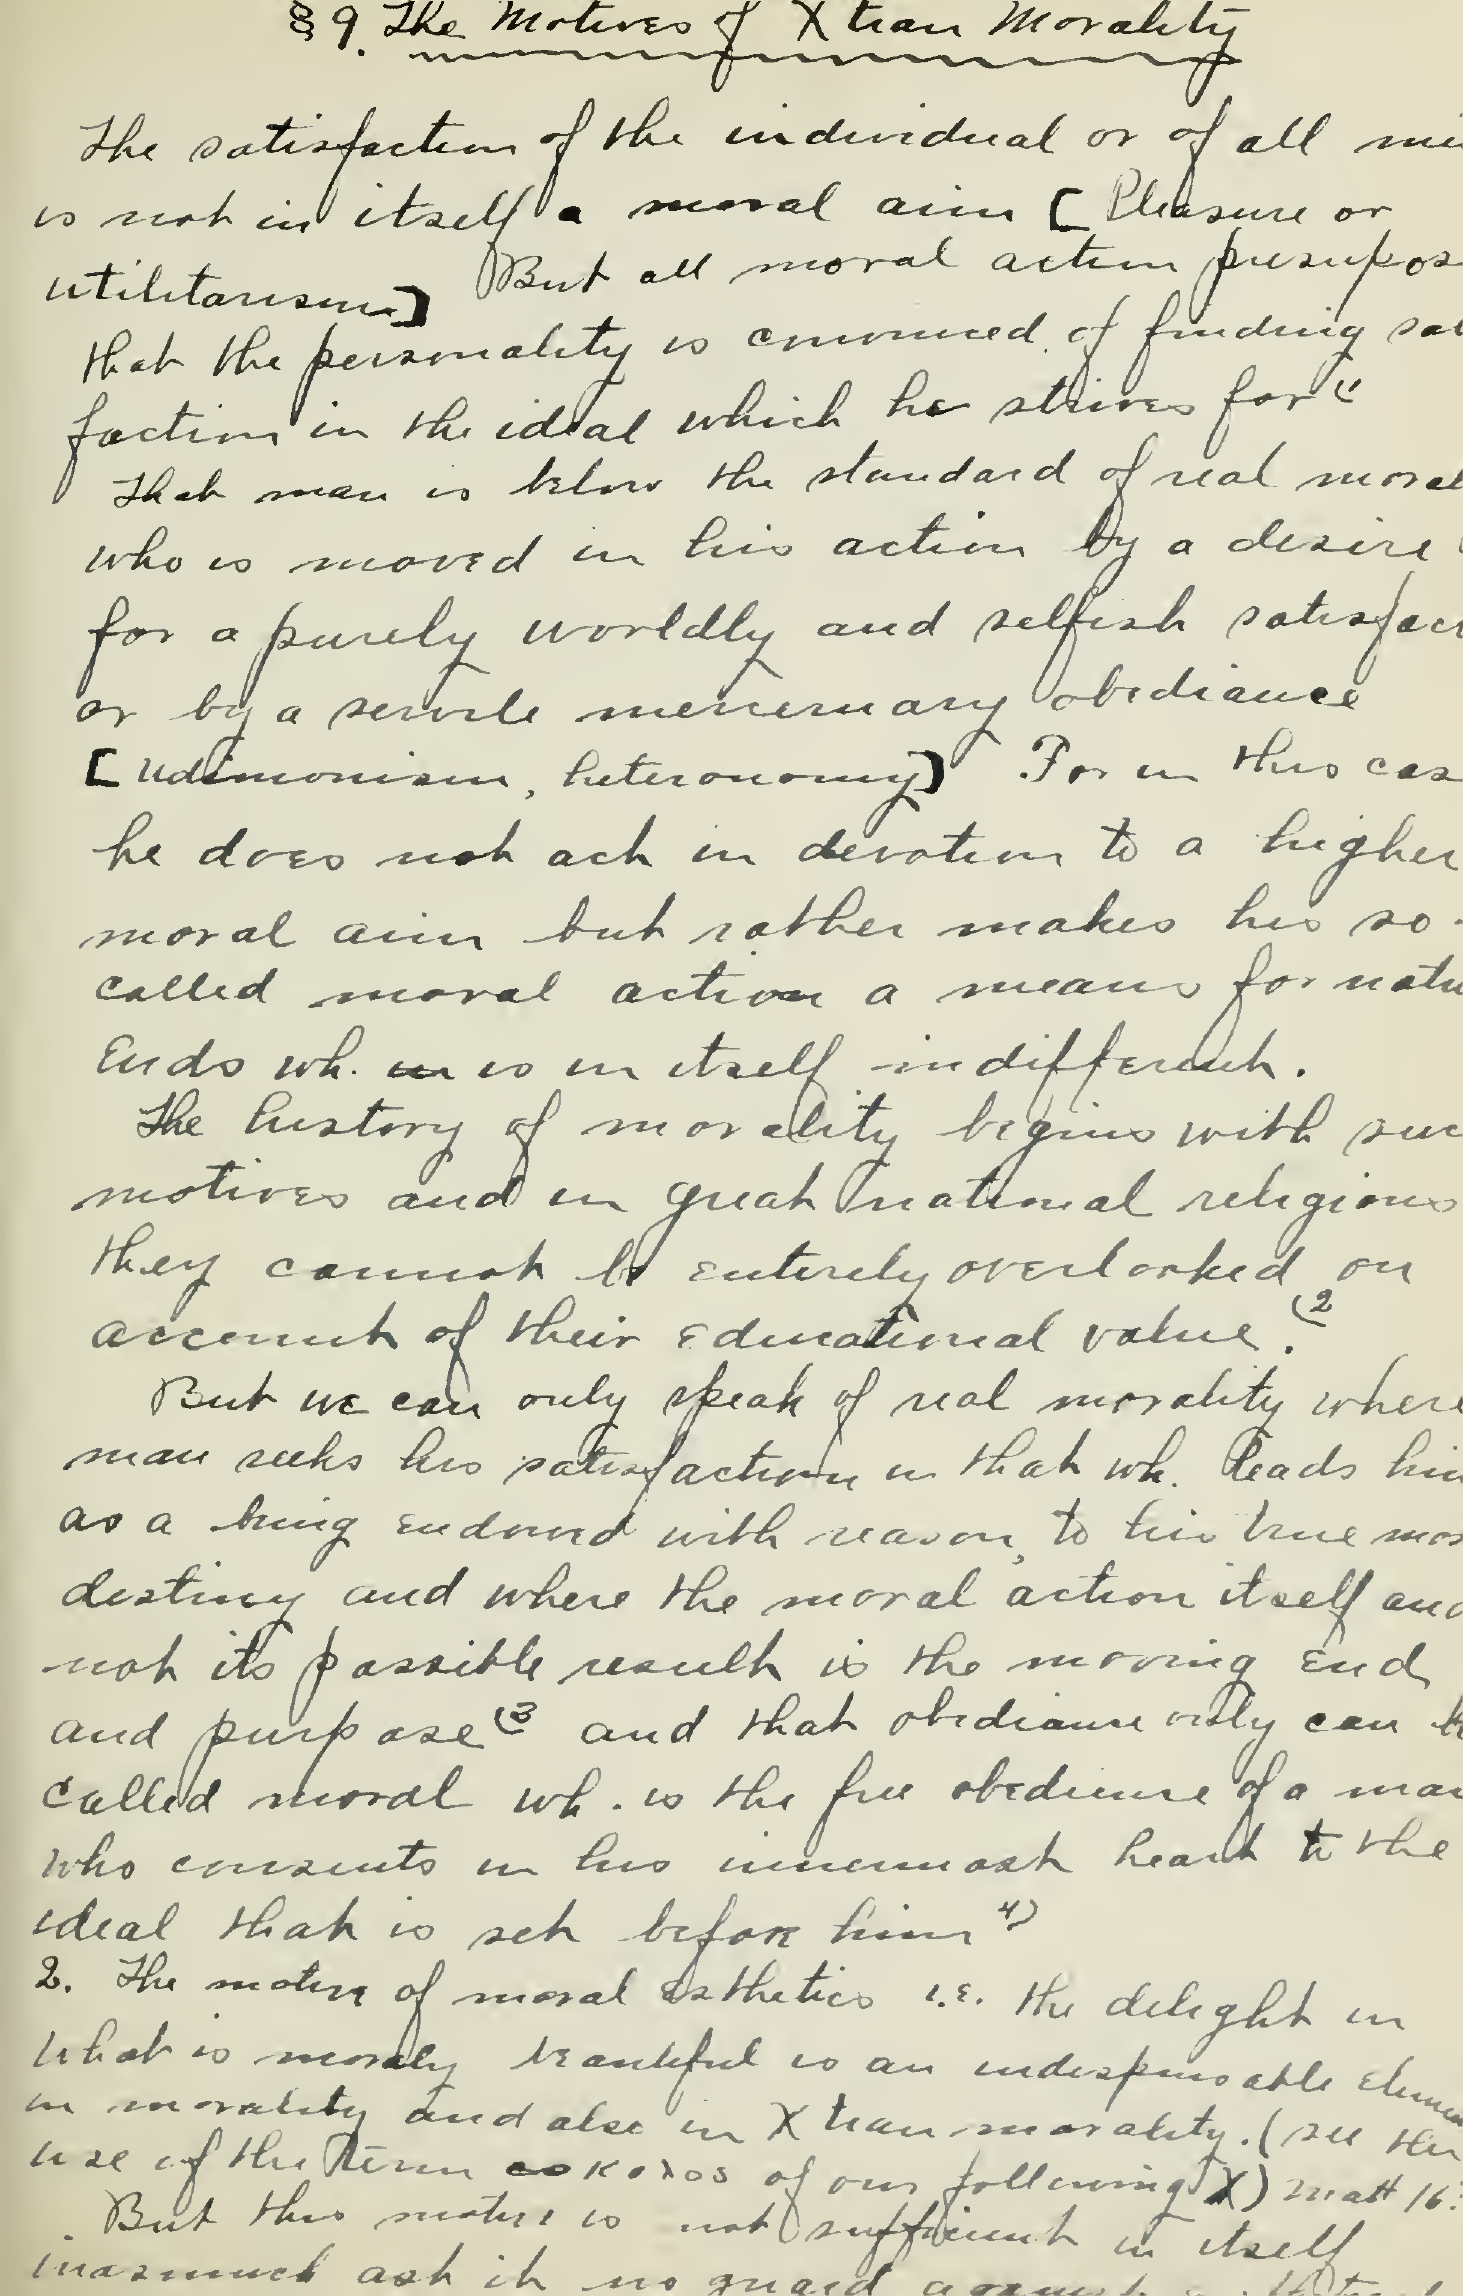 § 9. The Motives of Xtian Morality
The satisfaction of the individual or of all
is not in itself a moral aim [Pleasure or
utilitarism] But all moral action presuppos
that the personality is convinced of finding sat
faction in the ideal which he strives for (1
That man is below the standard of real moral
who is moved in his action by a desire
for a purely worldly and selfish satisfac
or by a servile mercenary obediance
[Udimonism, heteronomy] For in this cas
he does not act in devotion to a higher
moral aim but rather makes his so-
called moral action a means for natu
Ends wh. is in itself indifferent.
The history of morality begins with suc
motives and in great national religions
they cannot be entirely overlooked on
account of their educational value. (2
But we can only speak of real morality where
man seeks his satisfaction in that wh. leads him
as a being endowed with reason, to his true mor
destiny and where the moral action itself and
not its possible result is the moving End
and purpose (3 and that obediance only can be
called moral wh. is the free obedience of a man
who consents in his innermost heart to the
ideal that is set before him 4)
2. The motive of moral Esthetics i.e. the delight in
what is moraly beautiful is an indispensable Elemen
in morality and also in Xtian morality. (see the
use of the term καλος of our following X) Matt 16:
But this motive is not sufficient in itself
inasmuch as it no guard against